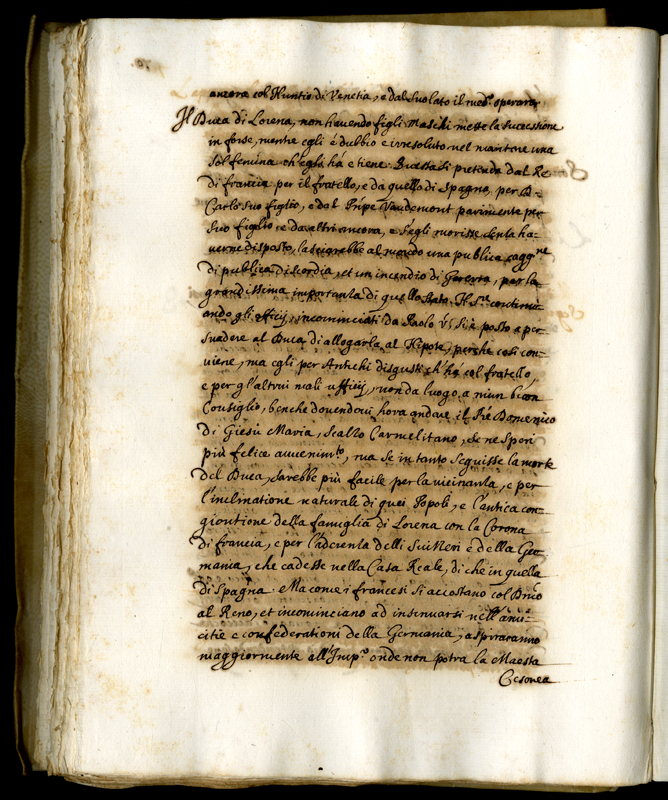 ancora col Nuntio di Venetia, e dal suo lato il med.º operare
Il Duca di Lorena, non havendo figli Maschi mette la successione
in forse, mentre egli è dubbio e irresoluto nel maritare una
sol femina ch'egli ha e tiene. Questa si pretende dal Re
di francia per il fratello, e da quello di Spagna, per D.
Carlo suo figlio, e dal Pnpe Vaudemont parimente per
suo figlio, e da altri ancora, e s'egli morisse senza ha-
verne disposto, lasciarebbe al mondo una publica
di publica discordia, et un incendio di Guerra, per la
grandissima importanza di quello stato. N. Sre continu-
ando gli ufficij, incominciati da Paolo V. si è posto a per
suadere al Duca di allogarla al Nipote, perche cosi con-
viene, ma egli per Antichi disgusti ch'ha col fratello,
e per gl'altrui mali ufficij, non da luogo a niun buon
Consiglio, benche dovendovi hora andare il Pre Domenico
di Giesù Maria, Scalzo Carmelitano, se ne speri
più felice avvenimto, ma se in tanto seguisse la morte
del Duca, sarebbe più facile per la vicinanza, e per
l'inclinatione naturale di quei Popoli, e l'antica con
giontione della famiglia di Lorena con la Corona
di francia, e per l'aderenza delli Suizzeri e della Ger
mania, che cadesse nella Casa Reale, di che in quella
di Spagna. Ma come i francesi si accostano col
al Reno, et incominciano ad insinuarsi nell'ami-
citie e confederationi della Germania, aspiraranno
maggiormente all'Impº onde non potra la Maesta
Cesarea